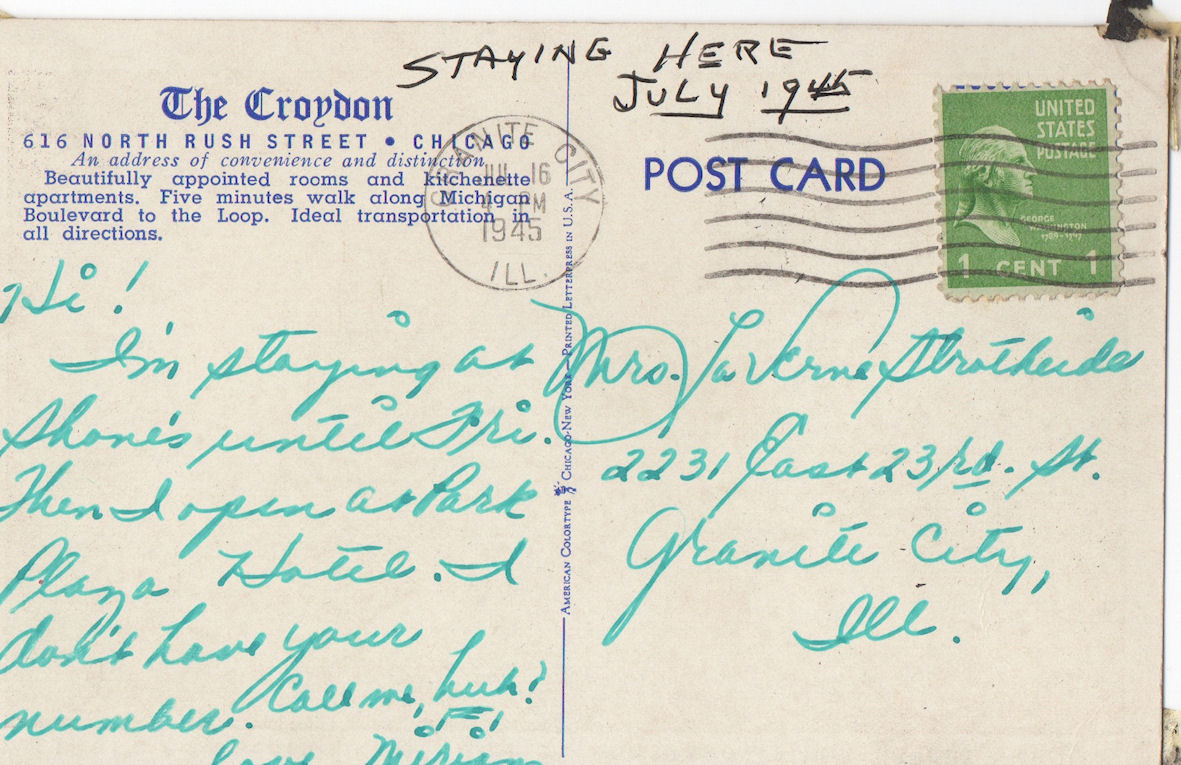 STAYING HERE
JULY 1945
The Croydon
616 NORTH RUSH STREET • CHICAGO
An address of convenience and distinction
Beautifully appointed rooms and kitchenette
apartments. Five minutes walk along Michigan
Boulevard to the Loop. Ideal transportation in
all directions.
GRANITE CITY
JUL 16
4 PM
1945
ILL.
POST CARD
UNITED
STATES
POSTAGE
GEORGE
WASHINGTON
1789-1797
1 CENT 1
Hi!
I'm staying at
Shone's until Fri.
Then I open at Park
Plaza Hotel. I
don't have your
number. Call me, huh?
Love Miriam
AMERICAN COLORTYPE CHICAGO-NEW YORK—PRINTED LETTERPRESS IN U.S.A.
Mrs. La Verne Strotheide
2231 East 23rd. St.
Granite City,
Ill.